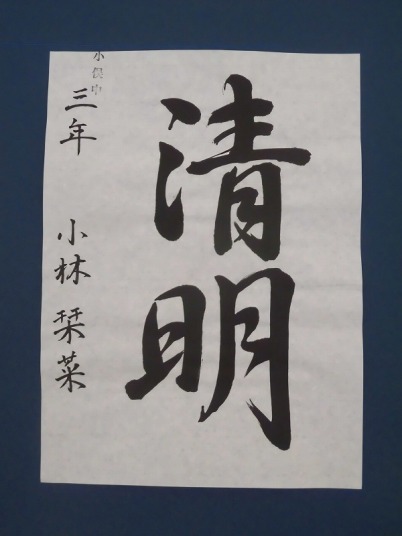 清明
小俣中
三年 小林 栞菜